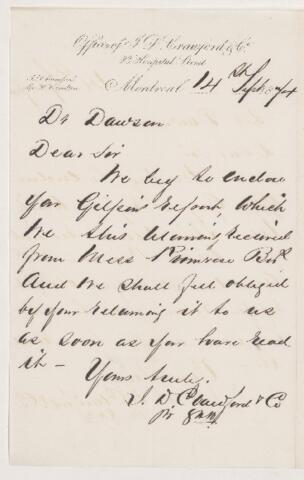 Office of J. D. Crawford & Co.
Hospital Street
Montreal 14th Sept 1874
Dr Dawson
Dear Sir
We beg to enclose
you Gilpin's report, which
we this morning received
from Mess Primrose Bros
And we shall feel obliged
by your returning it to us
as soon as you have read
it -
Yours truly,
J. D. Crawford & Co
pr